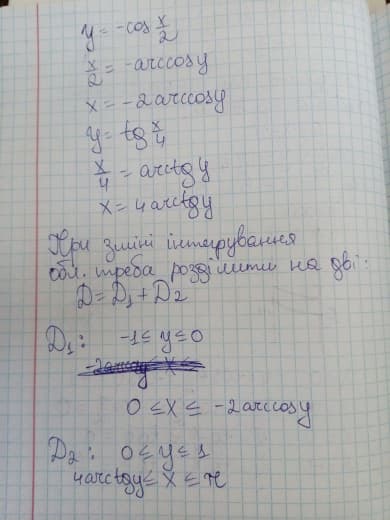 y = -cos x/2
x/2 = -arccosy
x = -2arccosy
y = tg x/4
x/4 = arctgy
x = 4arctgy
При зміні інтегрування
обл. треба розділити на дві:
D = D₁ + D₂
D₁: -1 ≤ y ≤ 0
0 ≤ x ≤ -2arccosy
D₂: 0 ≤ y ≤ 1
4arctgy ≤ x ≤ π